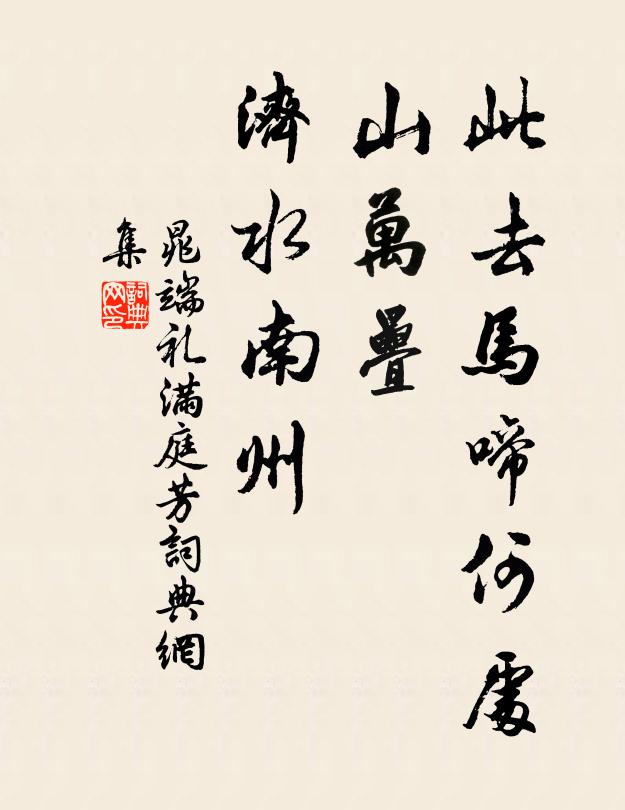 此去馬啼何處
山萬疊
濟水南州
晁端礼滿庭芳詞典網
集
詞典
网印